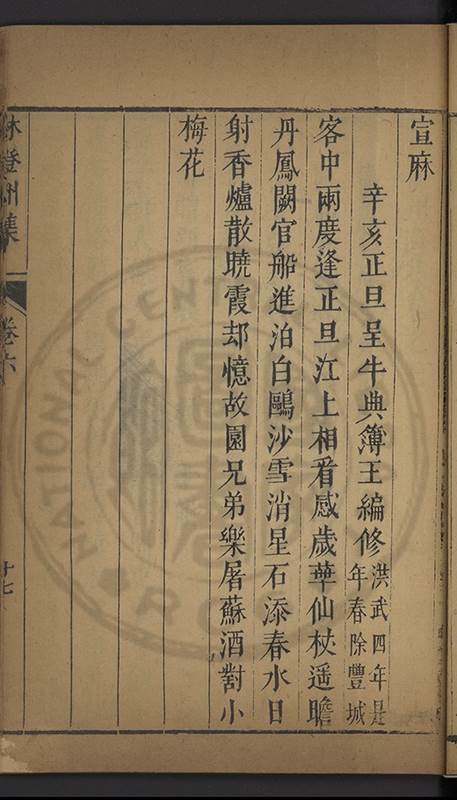 宣麻
辛亥正旦呈牛典簿王編修
洪武四年是
年春除豐城
客中兩度逢正旦江上相看感歲華仙杖遥瞻
丹鳳闕官船進泊白鷗沙雪消星石添春水日
射香爐散曉霞却憶故園兄弟樂屠蘇酒對小
梅花
登州集
卷六
十七